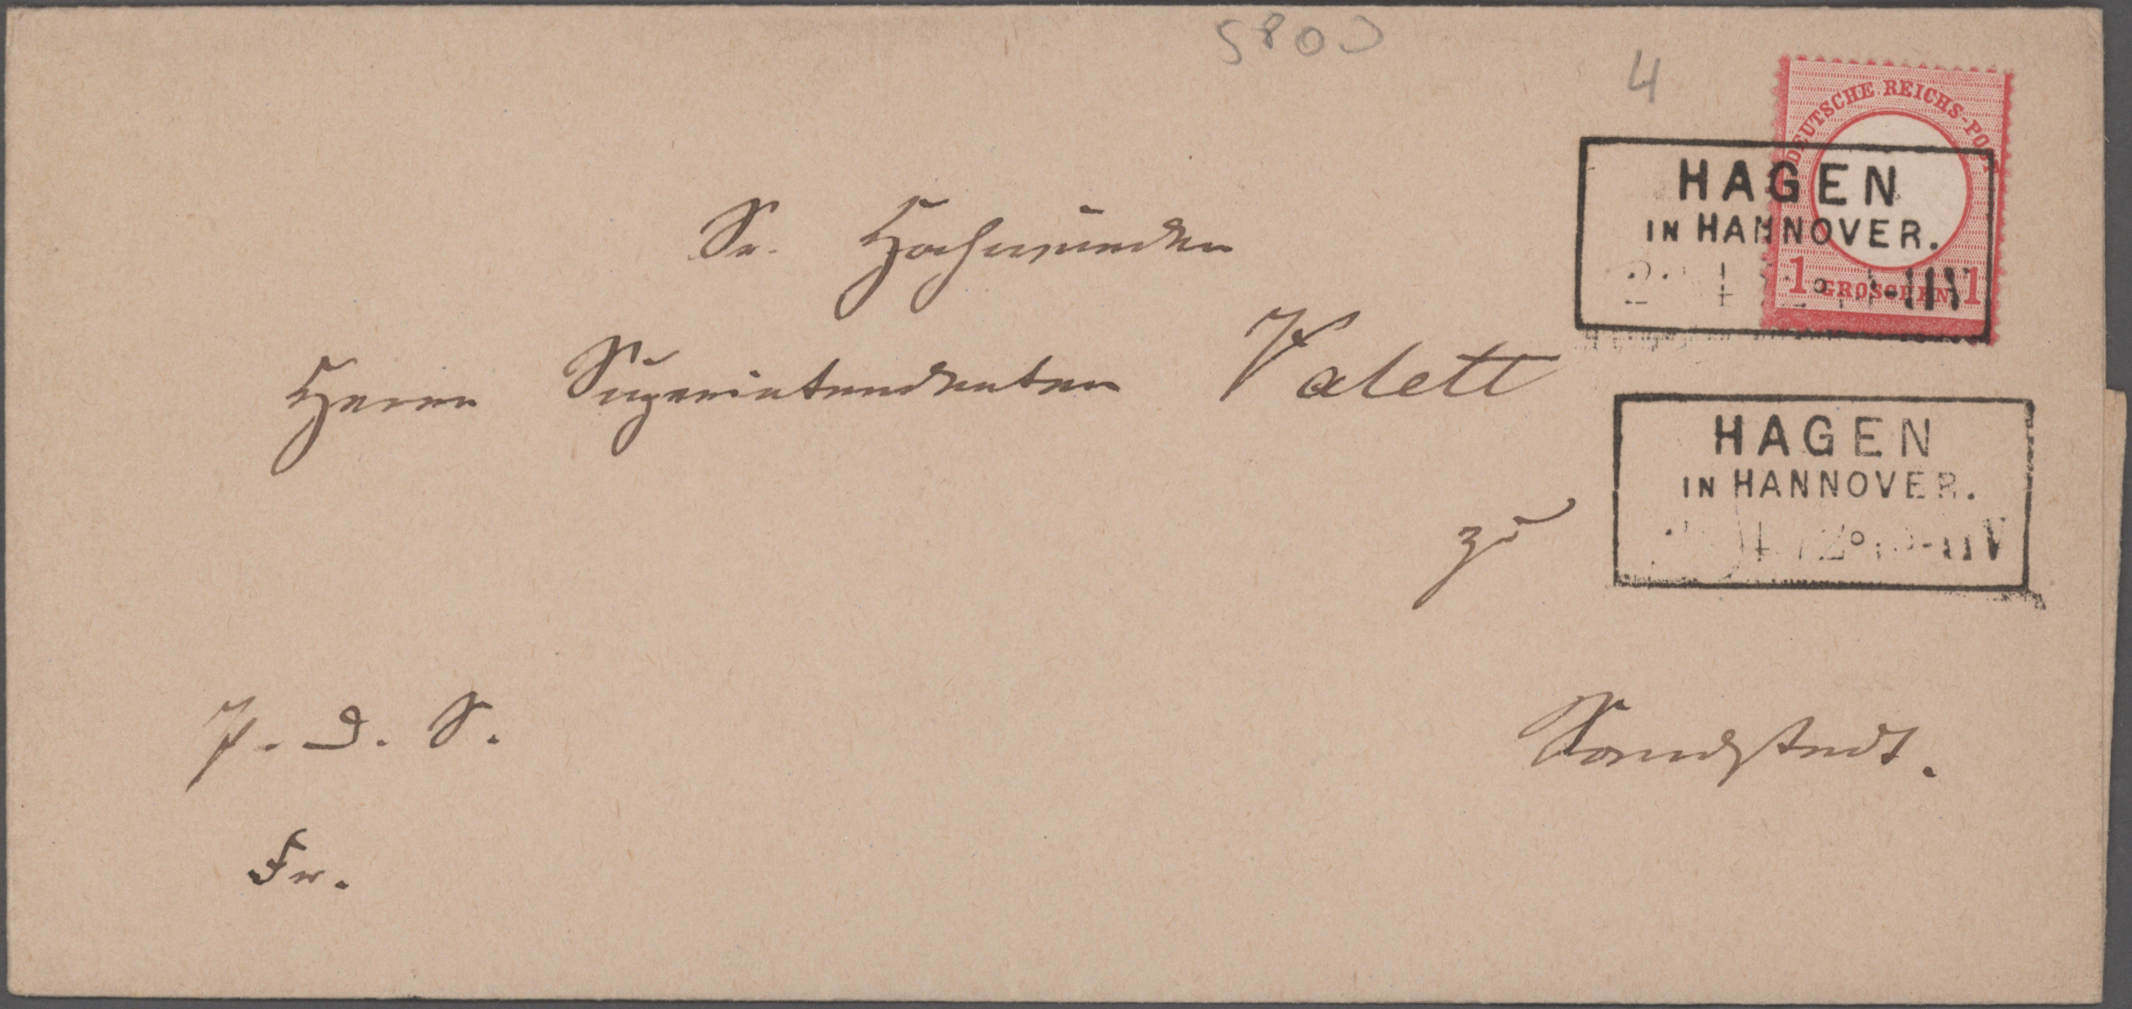 5800
4
DEUTSCHE REICHS-POST
1 GROSCHEN 1
HAGEN
IN HANNOVER.
Sr. Hochwürden
Herrn Superintendenten Valett
HAGEN
IN HANNOVER.
zu
P. D. S.
Sandstedt.
Fr.